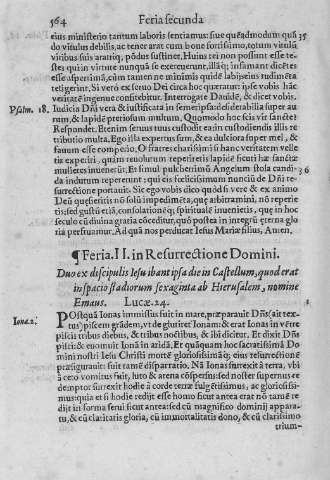 564 Feria secunda
eius ministerio tantum laboris sentiamus: siue quẽadmodum quũ 35
do vitulus debilis, ac tener arat cum boue fortissimo, totum vitulũ
viribus suis aratrũq; põdus sustinet, Huius rei non possunt esse te-
stes qui in virtute nunquã se exercuerunt, illãq; insamam dicẽtes
esse asperrimã, cũm tamen ne minimis quidẽ labijs eius rudimẽta
tetigerint. Si verò ex seruo Dei circa hoc quæratur: ipse vobis hãc
veritatẽ ingenue confitebitur. Interrogate Dauidẽ, & dicet vobis.
Psalm. 18. Iudicia Dñi vera & iustificata in semetipsa desiderabilia super au
rum, & lapidẽ pretiosum multum. Quomodo hoc scis vir sancte?
Respondet. Etenim seruus tuus custodit ea: in custodiendis illis re
tributio multa. Ego illa expertus sum, & ea dulciora super mel, &
fauum esse comperio. O fratres charissimi si hanc veritatem velle
tis experiri, quàm reuolurum repetiretis lapidẽ sicuti hæ sanctæ
mulieres inuenerũt. Et simul pulcherrimũ Angelum stola candi- 36
da indutum reperirent: qui eis felicissimum nunciũ de Dñi re-
surrectione portauit. Sic ego vobis dico quòd si verè & ex animo
Deũ quæsieritis nõ solũ impedimẽta, quæ arbitramini, nõ reperie-
tis: sed gustũ etiã, consolationẽq; spiritualẽ inuenietis, que in hoc
seculo cũ diuina gratia coceditur, quò postea in integrũ æterna glo
ria perfruamur. Ad quã nos perducat Iesus Mariæ filius, Amen.
¶ Feria. II. in Resurrectione Domini.
Duo ex discipulis Iesu ibant ipsa die in Castellum, quod erat
in spacio stadiorum sexaginta ab Hierusalem, nomine
Emaus. Lucæ. 24. 1
Ionæ. 2. POstquã Ionas immissus fuit in mare, præparauit Dñs (ait tex-
tus) piscem grãdem, vt deglutiret Ionam: & erat Ionas in vẽtre
piscis tribus diebus, & tribus noctibus, & ibi dicitur. Et dixit Dñs
pisci: & euomuit Ionã in aridã. Et quãquam hoc sacratissimã Do
mini nostri Iesu Christi mortẽ gloriosissimãq; eius resurrectionẽ
præsigurauit: fuit tamẽ disparratio. Nã Ionas surrexit à terra, vbi
à ceto vomitus fuit, luto & arena cõspersus: sed noster supernus re
demptor surrexit hodie à corde terræ fulgẽtissimus, ac gloriosissi-
mus: quia etsi hodie redijt esse homo sicut antea erat nõ tamẽ re
dijt in forma serui sicut antea: sed cũ magnifico dominij appara-
tu, & cũ claritatis gloria, cũ immortalitatis dono, & cũ clarissimo
trium-